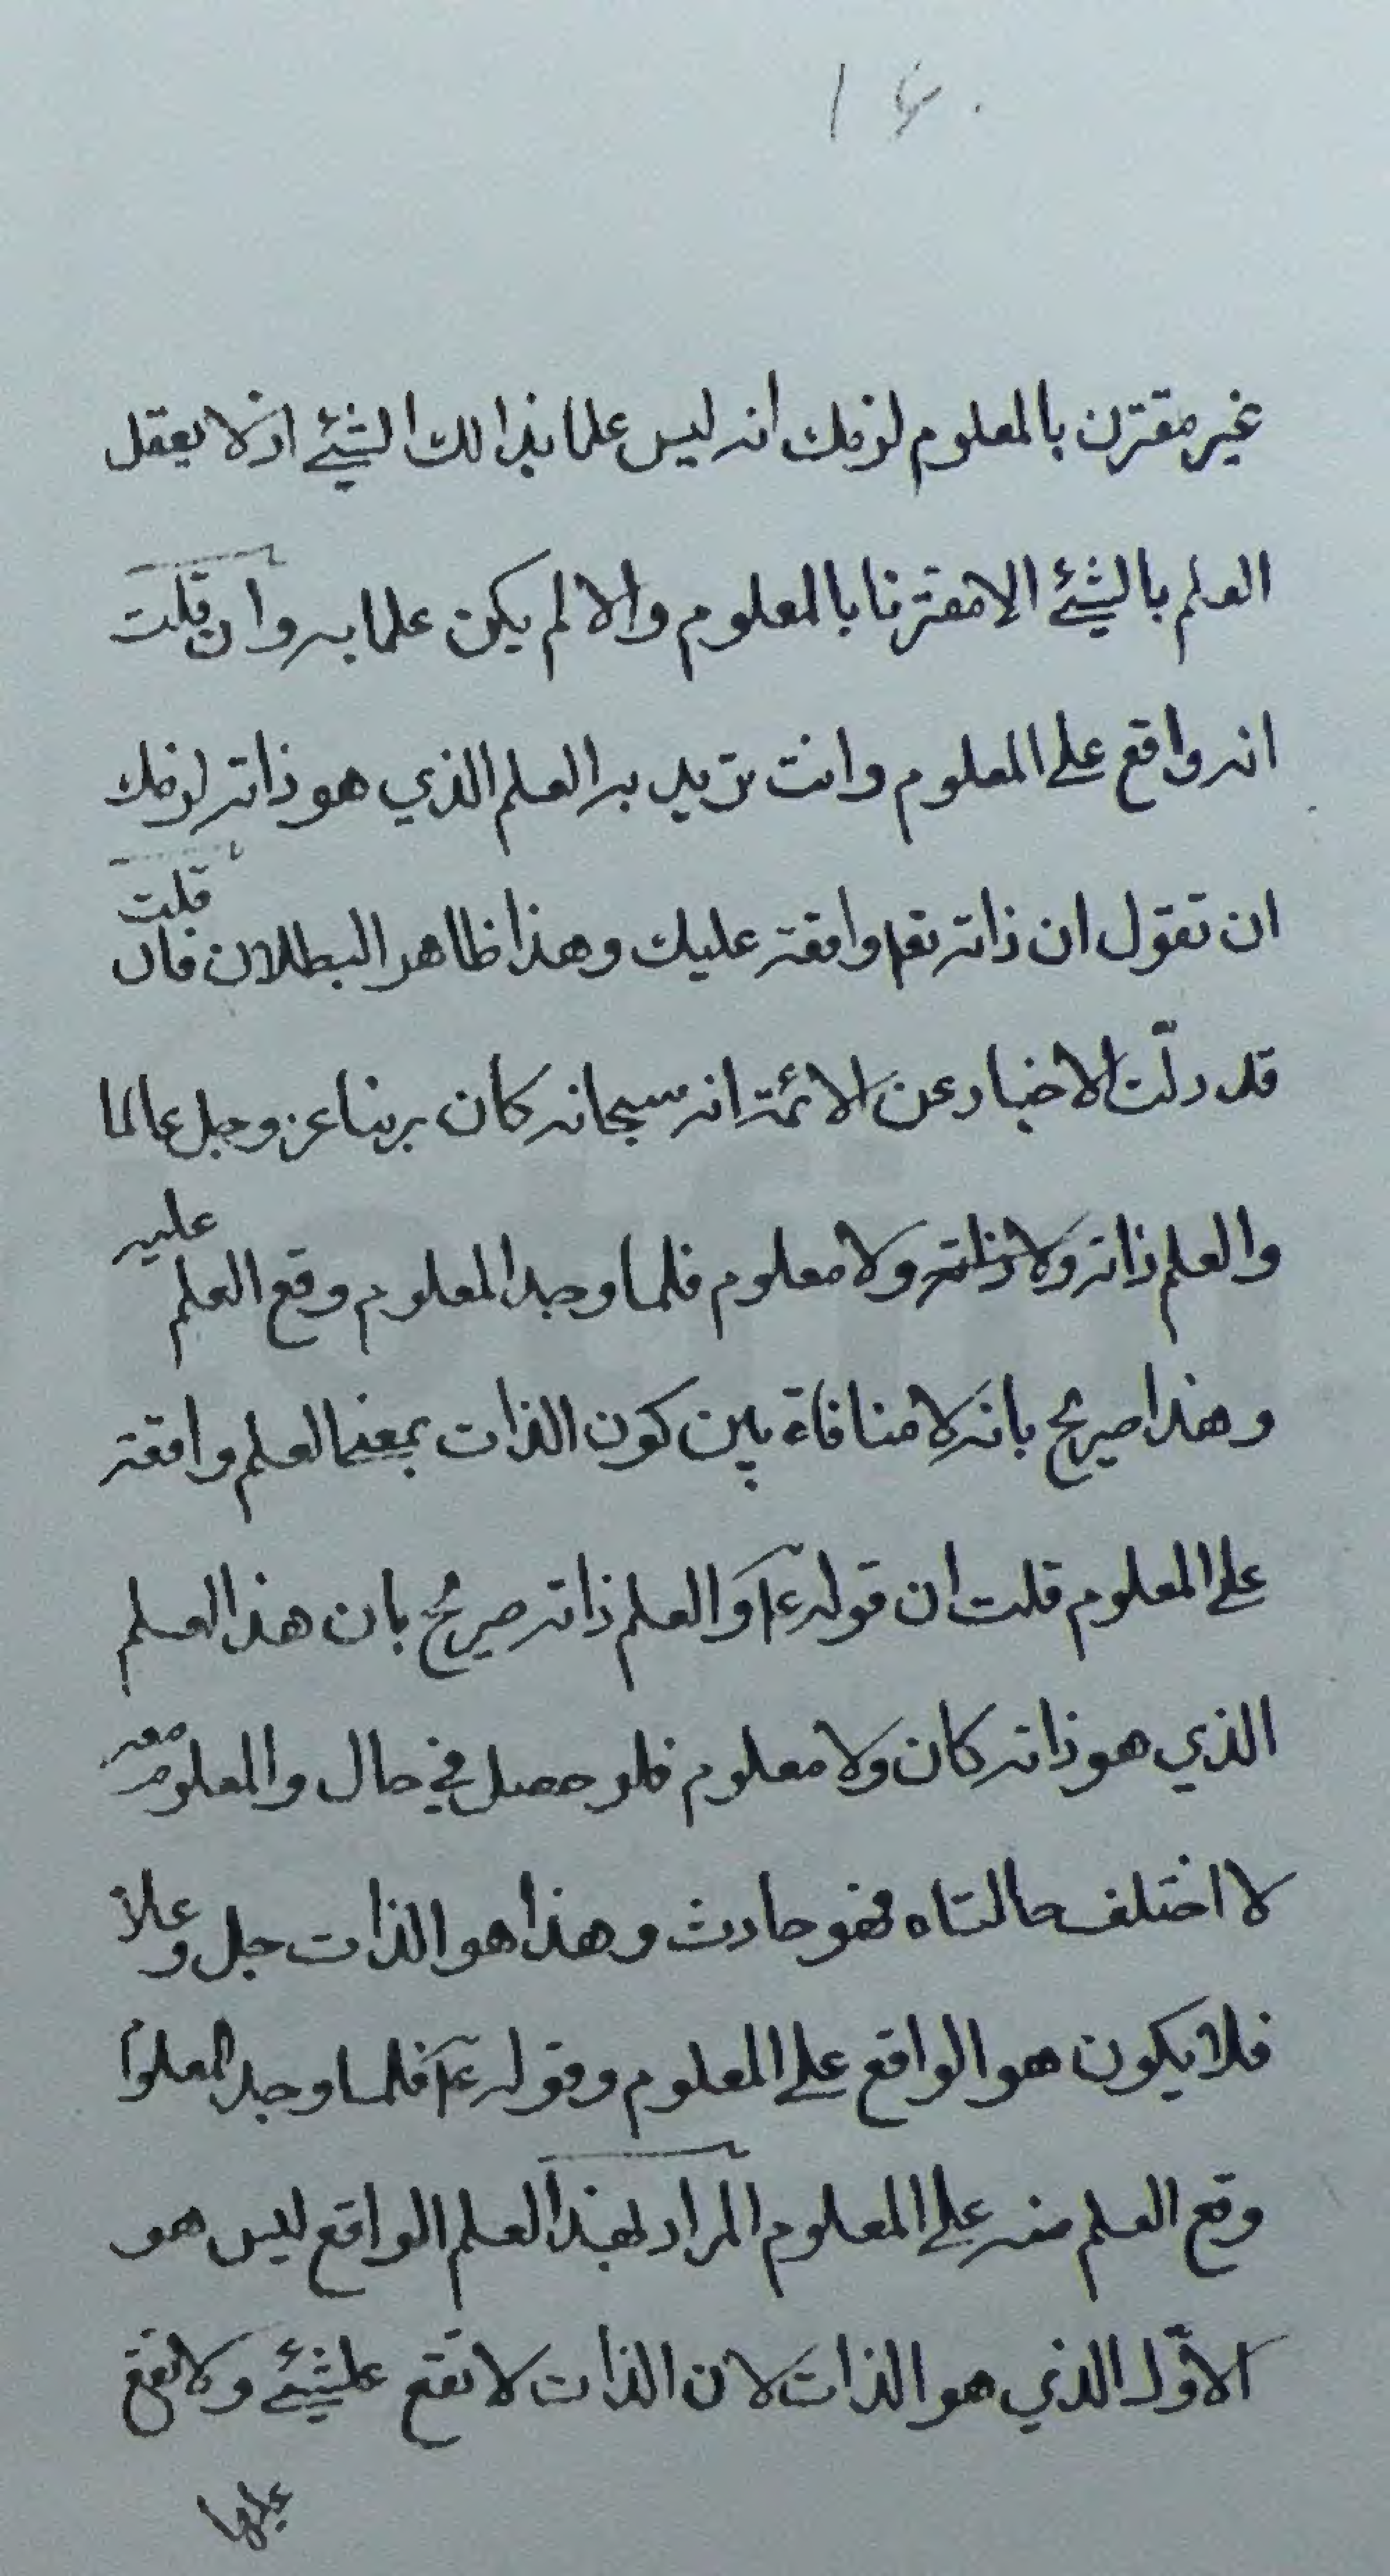 ١٤٠
غير مقترن بالمعلوم لزمك انه ليس علما بذالك الشيئ اذ لا يعقل
العلم بالشيئ الا مقترنا بالمعلوم والا لم يكن علما به وان قلت
انه واقع على المعلوم وانت تريد به العلم الذي هو ذاته لزمك
ان تقول ان ذاته تعم واقعة عليك وهذا ظاهر البطلان فان قلت
قد دلّت الاخبار عن الائمة انه سبحانه كان ربنا عز وجل عالما
والعلم ذاته ولا معلوم فلما وجد المعلوم وقع العلم عليه
وهذا صريح بانه لا منافاة بين كون الذات بمعنى العلم واقعة
على المعلوم قلت ان قوله ع والعلم ذاته صريح بان هذا العلم
الذي هو ذاته كان ولا معلوم فلو حصل في حال والمعلوم معه
لاختلف حالتاه فهو حادث وهذا هو الذات جل وعلا
فلا يكون هو الواقع على المعلوم وقوله ع فلما وجد المعلوم
وقع العلم منه على المعلوم المراد بهذا العلم الواقع ليس هو
الاوّل الذي هو الذات لان الذات لا تقع على شيئ ولا تقع
عليها